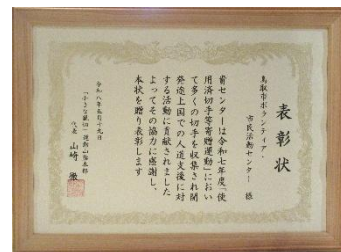 表彰状
鳥取市ボランティア・
市民活動センター 様
貴センターは令和七年度「使
用済切手等寄贈運動」におい
て多くの切手を収集され開
発途上国での人道支援に対
する活動に貢献されました
よってその協力に感謝し、
本状を贈り表彰します
令和八年
「小さな親切」運動
代表 山崎